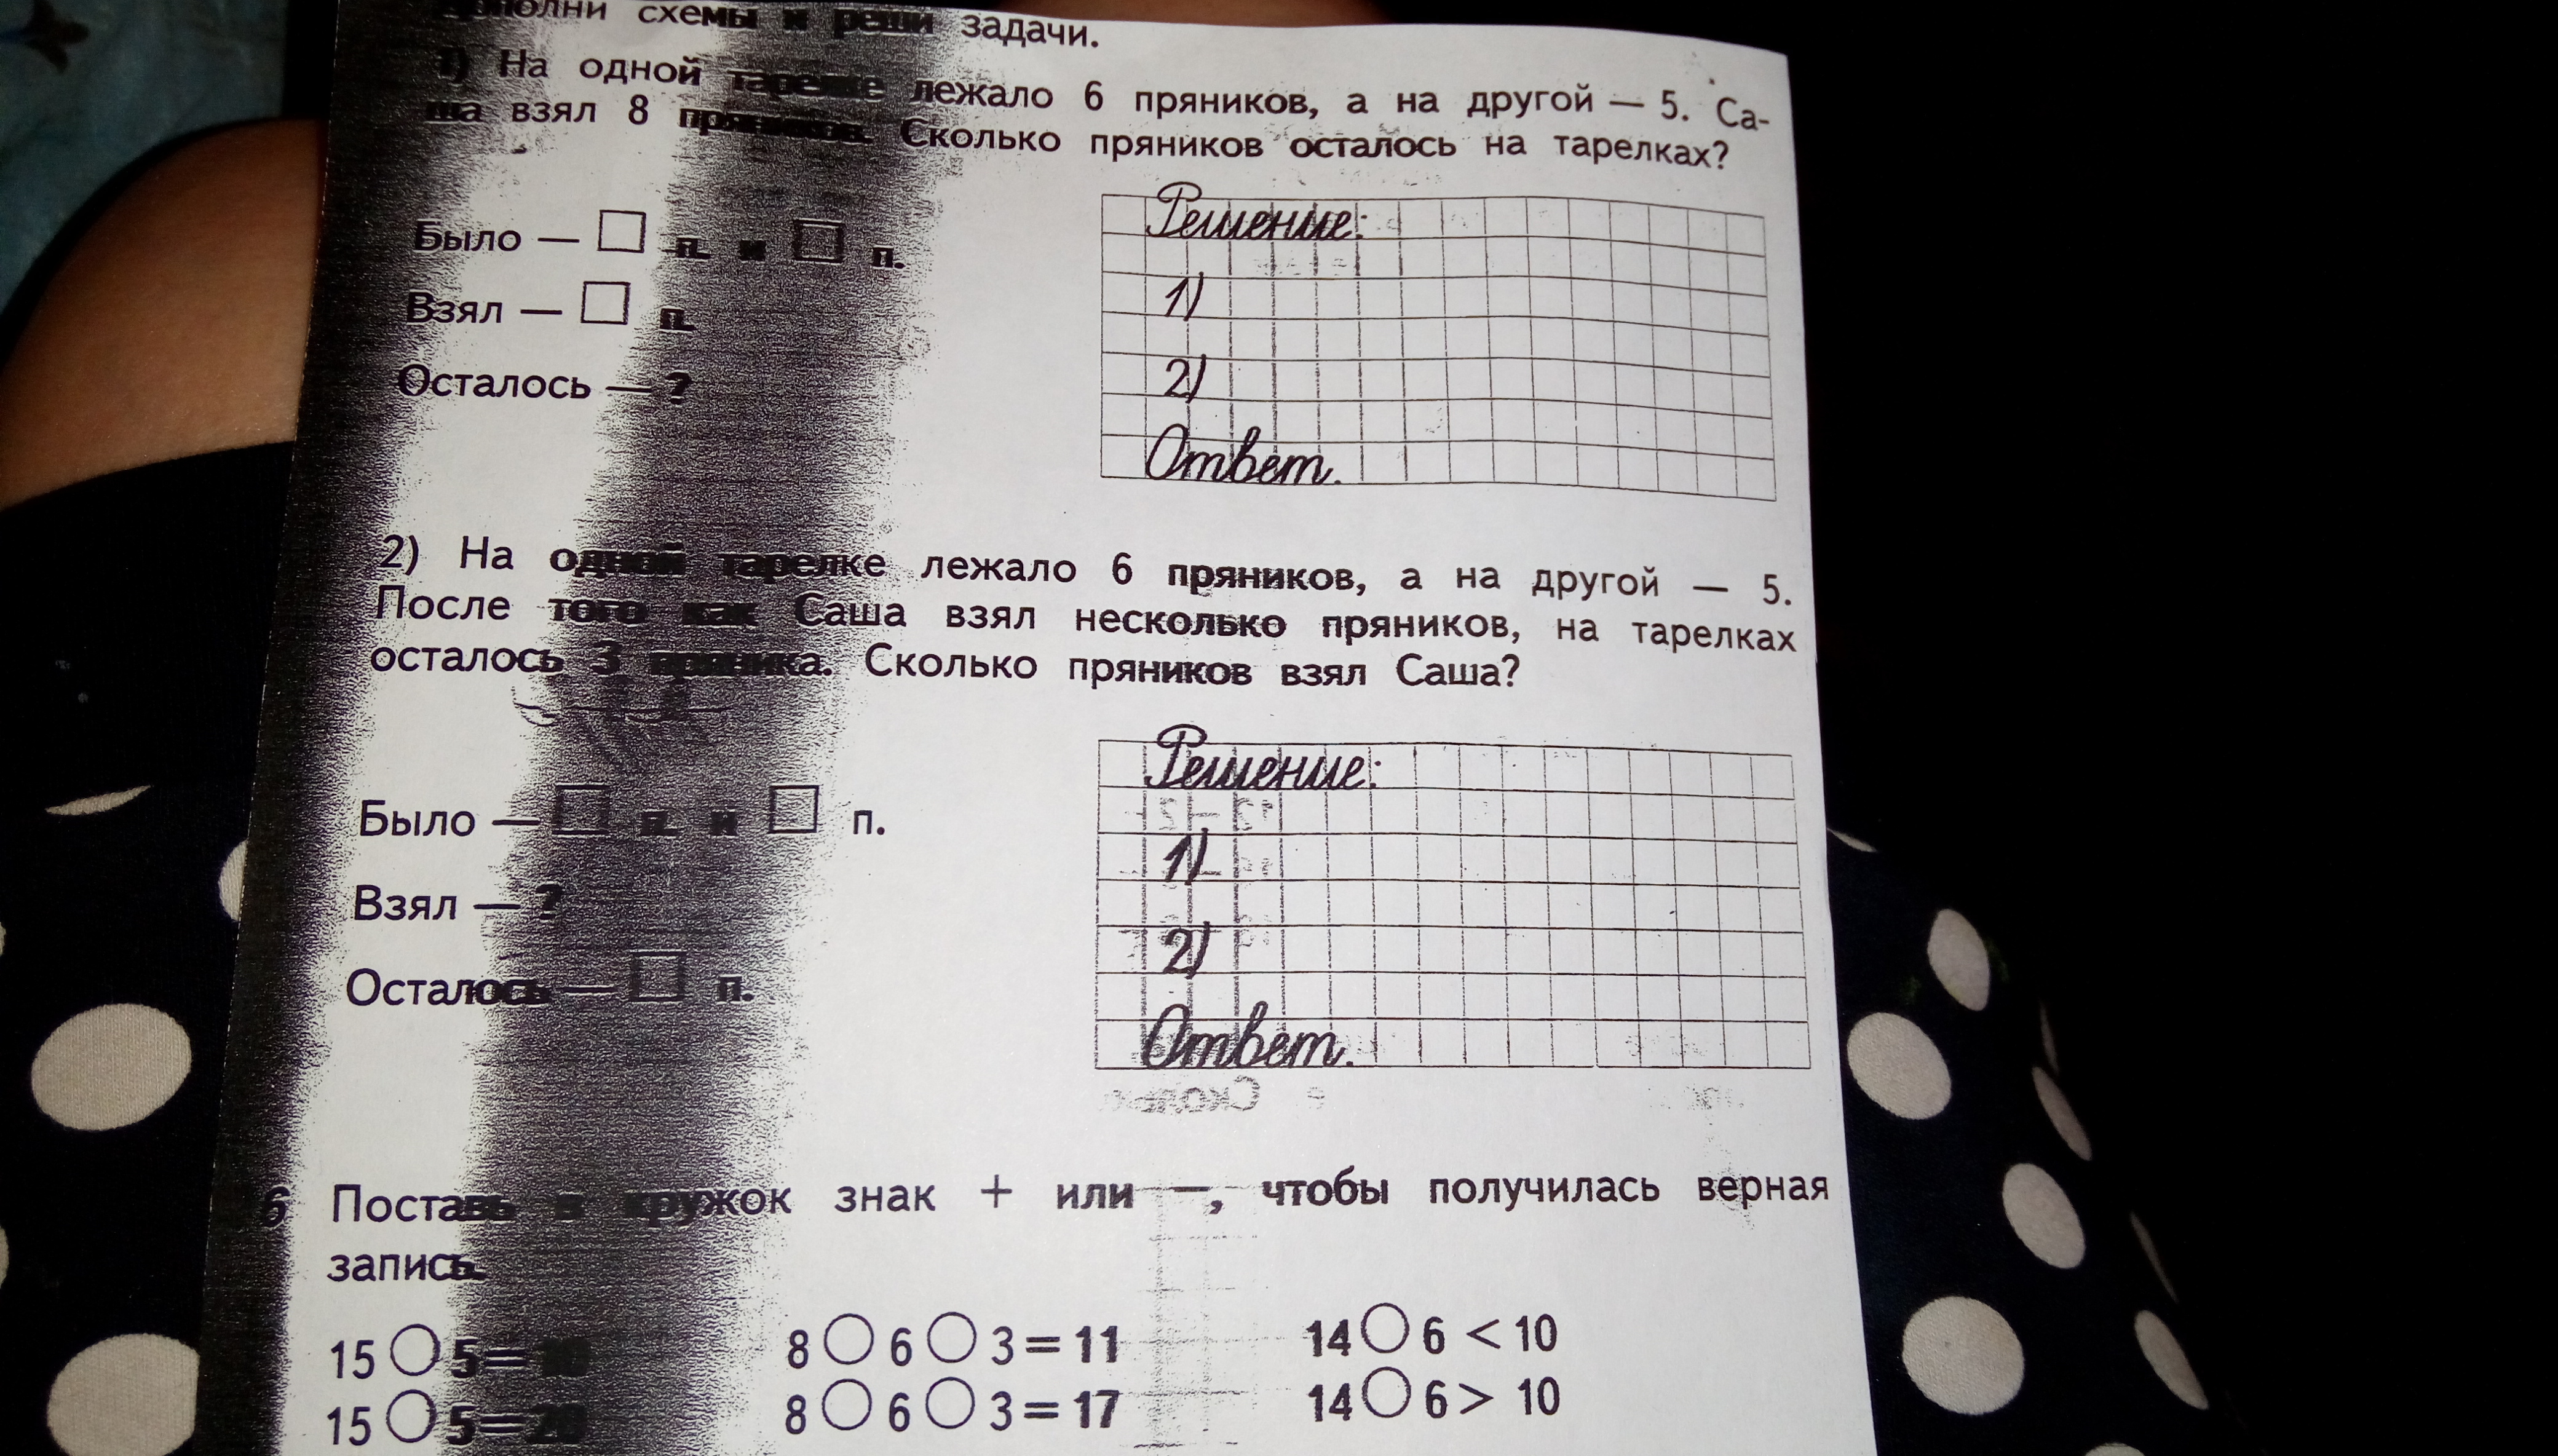 схемы и реши задачи.
1) На одной тарелке лежало 6 пряников, а на другой — 5. Са-
ша взял 8 пряников. Сколько пряников осталось на тарелках?
Было — □ п. и □ п.
Взял — □ п.
Осталось — ?
Решение:
1)
2)
Ответ.
2) На одной тарелке лежало 6 пряников, а на другой — 5.
После того как Саша взял несколько пряников, на тарелках
осталось 3 пряника. Сколько пряников взял Саша?
Было — □ п. и □ п.
Взял — ?
Осталось — □ п.
Решение:
1)
2)
Ответ.
6 Поставь в кружок знак + или —, чтобы получилась верная
запись.
15 ○ 5 = 10 8 ○ 6 ○ 3 = 11 14 ○ 6 < 10
15 ○ 5 = 20 8 ○ 6 ○ 3 = 17 14 ○ 6 > 10